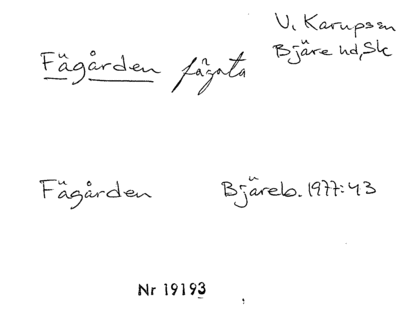 V. Karupssn
Bjäre hd, Sk
Fägården fägata
Fägården Bjäreb. 1977:43
Nr 19193